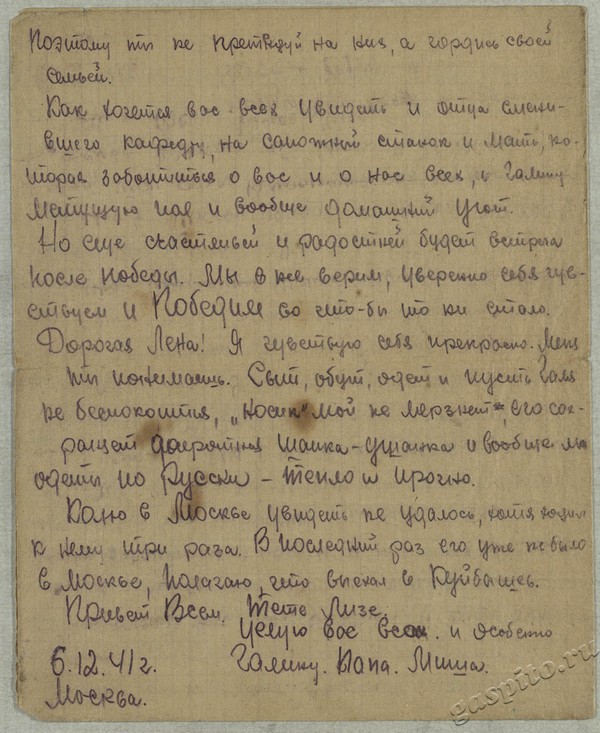 Поэтому ты не претендуй на них, а гордись своей
семьёй.
Как хочется вас всех увидеть и отца смени-
вшего кафедру, на сапожный станок и мать, ко-
торая заботиться о вас и о нас всех, и Галину
и вообще домашний уют.
Но еще счастливей и радостней будет встреча
после победы. Мы в нее верим, уверенно себя чув-
ствуем и Победим во что-бы то ни стало.
Дорогая Лена! Я чувствую себя прекрасно. Меня
ты понимаешь. Сыт, обут, одет и пусть Галя
не беспокоится, "носик" мой не мерзнет, его сох-
раняет добротная шапка-ушанка и вообще мы
одеты по Русски - тепло и прочно.
Колю в Москве увидеть не удалось, хотя ходил
к нему три раза. В последний раз его уже не было
в Москве, полагаю, что выехал в Куйбышев.
Привет Всем. Тете Лизе.
Целую вас всех и особенно
6.12.41 г. Галину. Папа. Миша.
Москва.
gaspito.ru